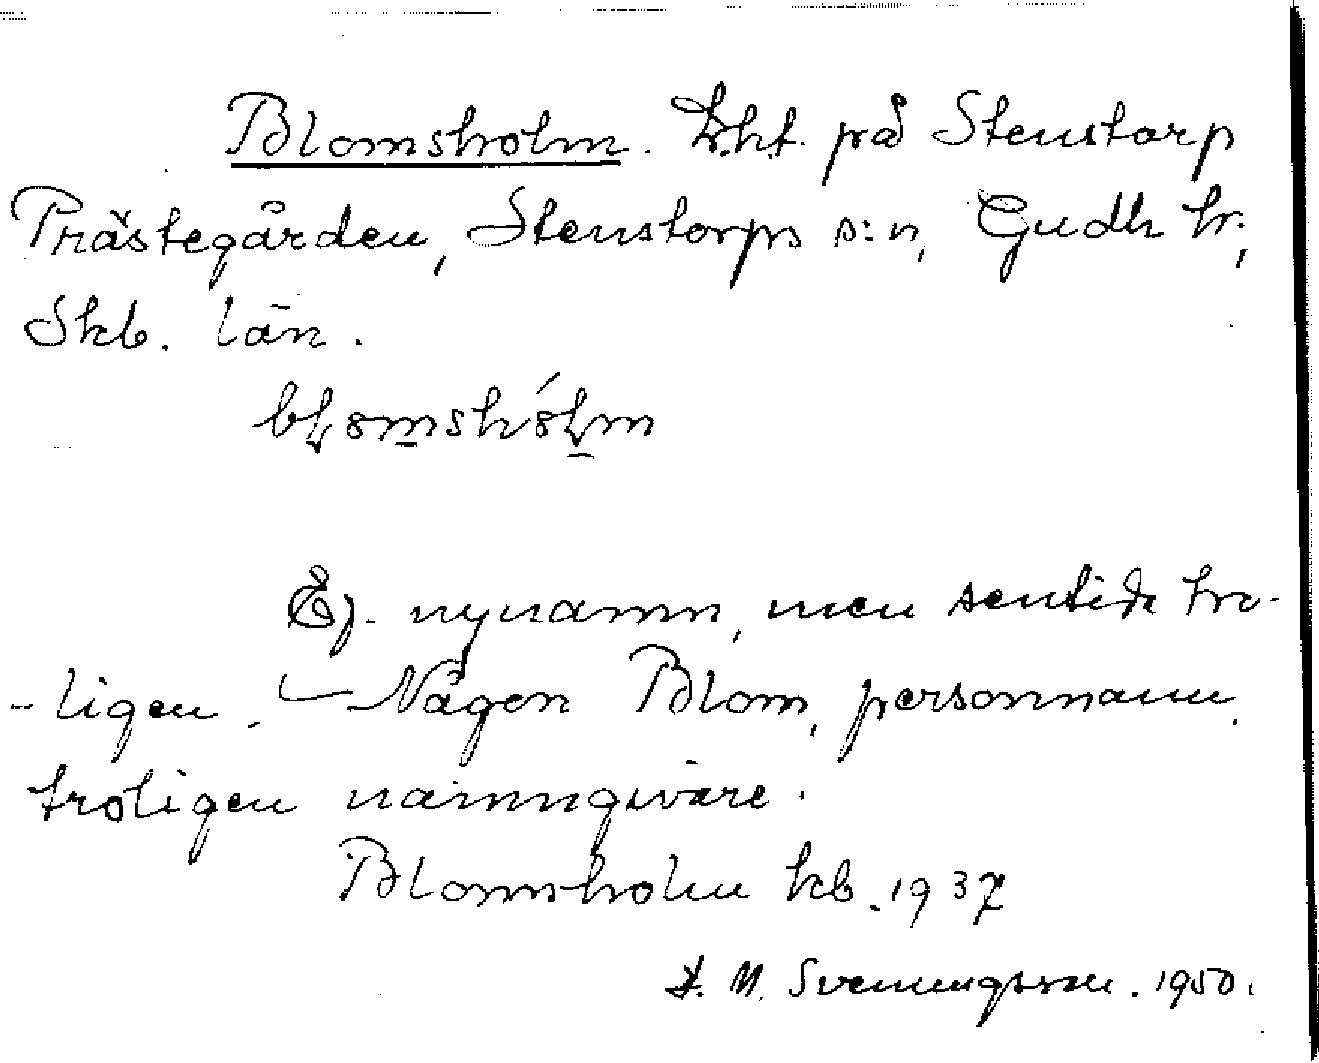 Blomsholm. Lht. på Stenstorp
Prästegården, Stenstorps s:n, Gudh hr;
Skb. län.
Ej. nynamn, men sentida tro-
-ligen. Någon Blom, personnamn,
troligen namngivare.
Blomsholm kb. 1937
M. Svenungsson. 1950.